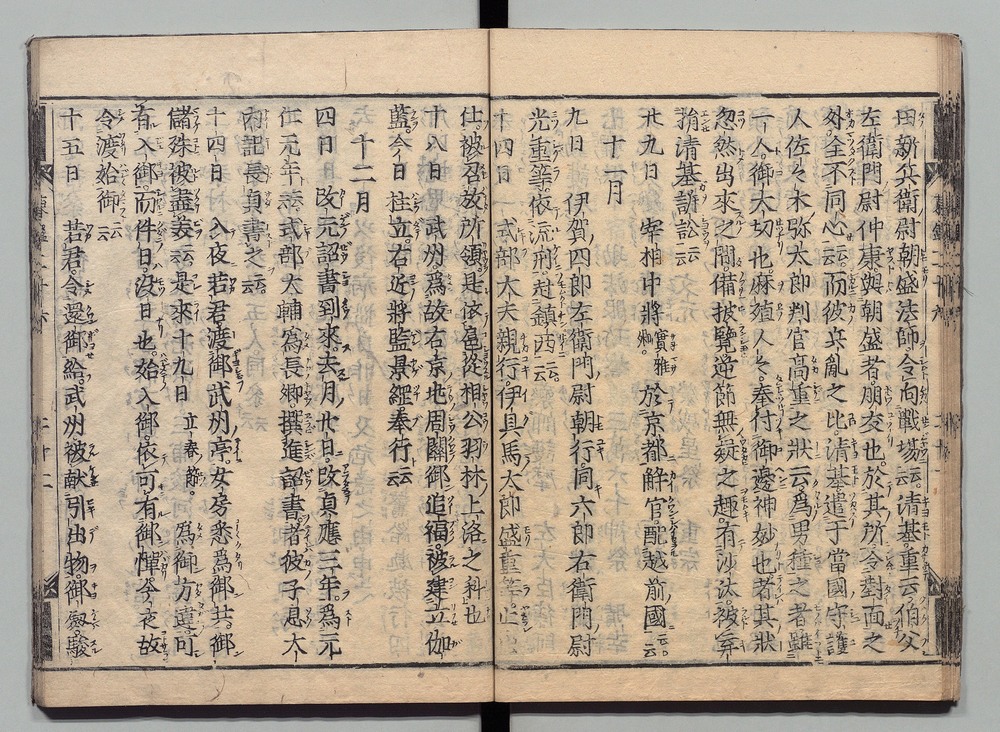 田新兵衛尉朝盛法師令向戰場云清基重云伯父
左衛門尉仲康與朝盛者朋友也於其所令對面之
外全不同心云而彼兵亂之比清基遣于當國守護
人佐々木弥太郎判官高重之狀云爲男種之者雖
一人御大切也麻殖人々奉付御邊神妙也者其狀
忽然出來之間備披覽逆節無疑之趣有沙汰被弃
捐清基訴訟云云
廿九日 宰相中將 實雅卿 於京都解官配越前國云云
十一月
九日 伊賀四郎左衛門尉朝行同六郎右衛門尉
光重等依流刑赴鎮西云云
十四日 式部大夫親行伊具馬太郎盛重等止出
仕被召放所領是依扈從相公羽林上洛之科也
十八日 思武州爲故右京兆周關御追福被建立伽
藍今日柱立右近將監景綱奉行云云
十二月
四日 改元詔書到來去月廿日改貞應三年爲元
仁元年式部大輔爲長卿撰進詔書者彼子息大
内記長貞書之云云
十四日 入夜若君渡御武州亭女房悉爲御共御
儲殊被盡美云云是來十九日 立春節 爲御方違可
有入御而件日没日也始入御依可有御憚今夜故
令渡始御云云
十五日 若君令還御給武州被献引出物御劔駿